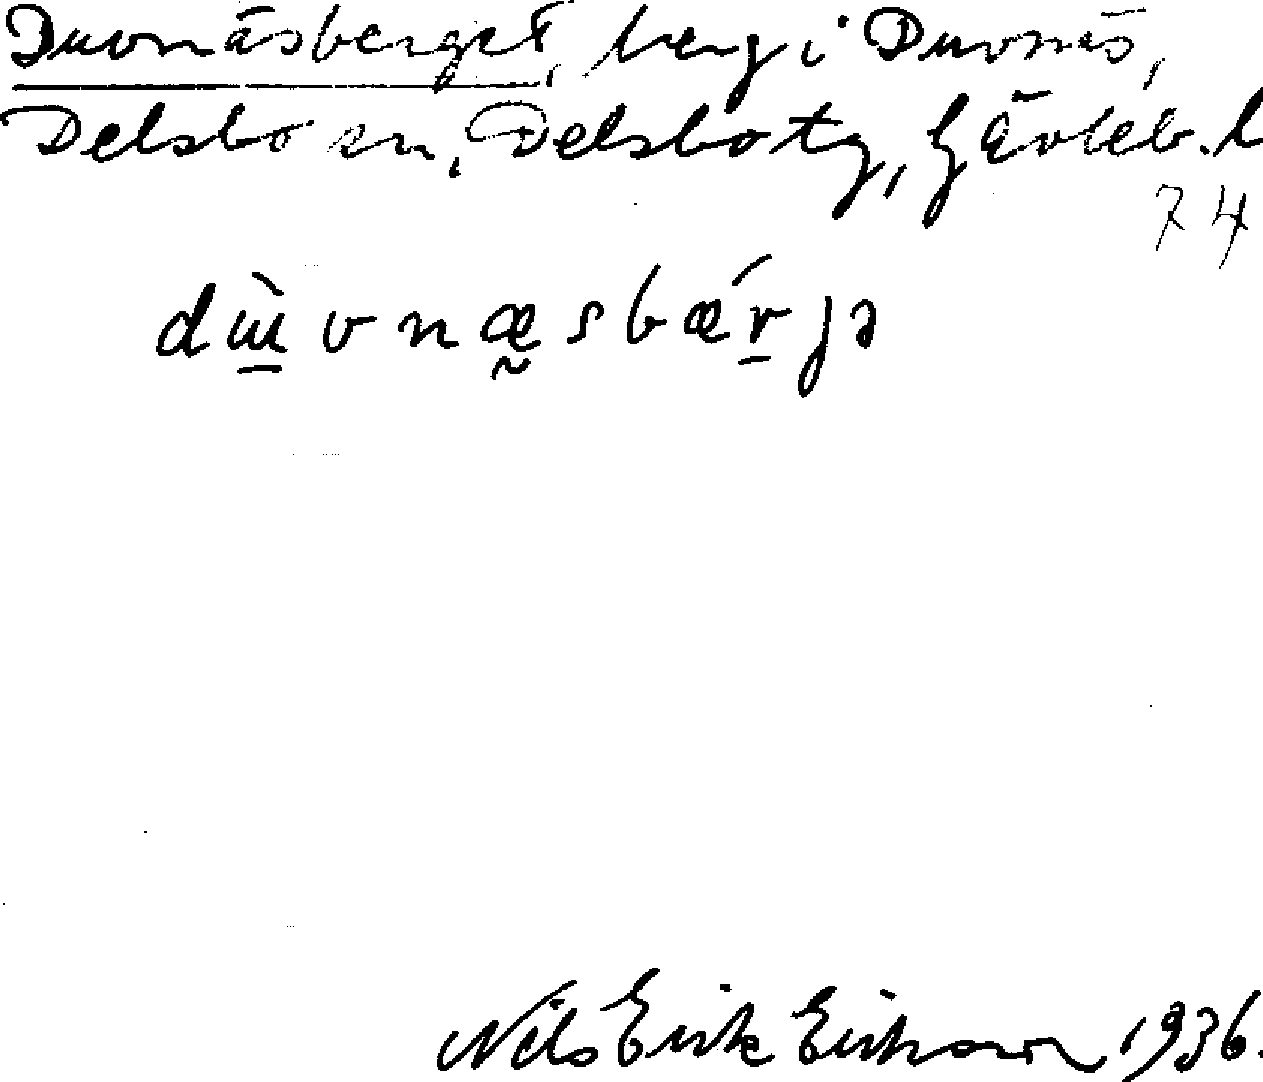 Duvnäsberget, berg i Duvnäs,
Delsbo sn, Delsbo tg, Gävleb. l
74
dɯ̱̀vnæ̰sbǽṟjə
Nils Erik Erikson 1936.